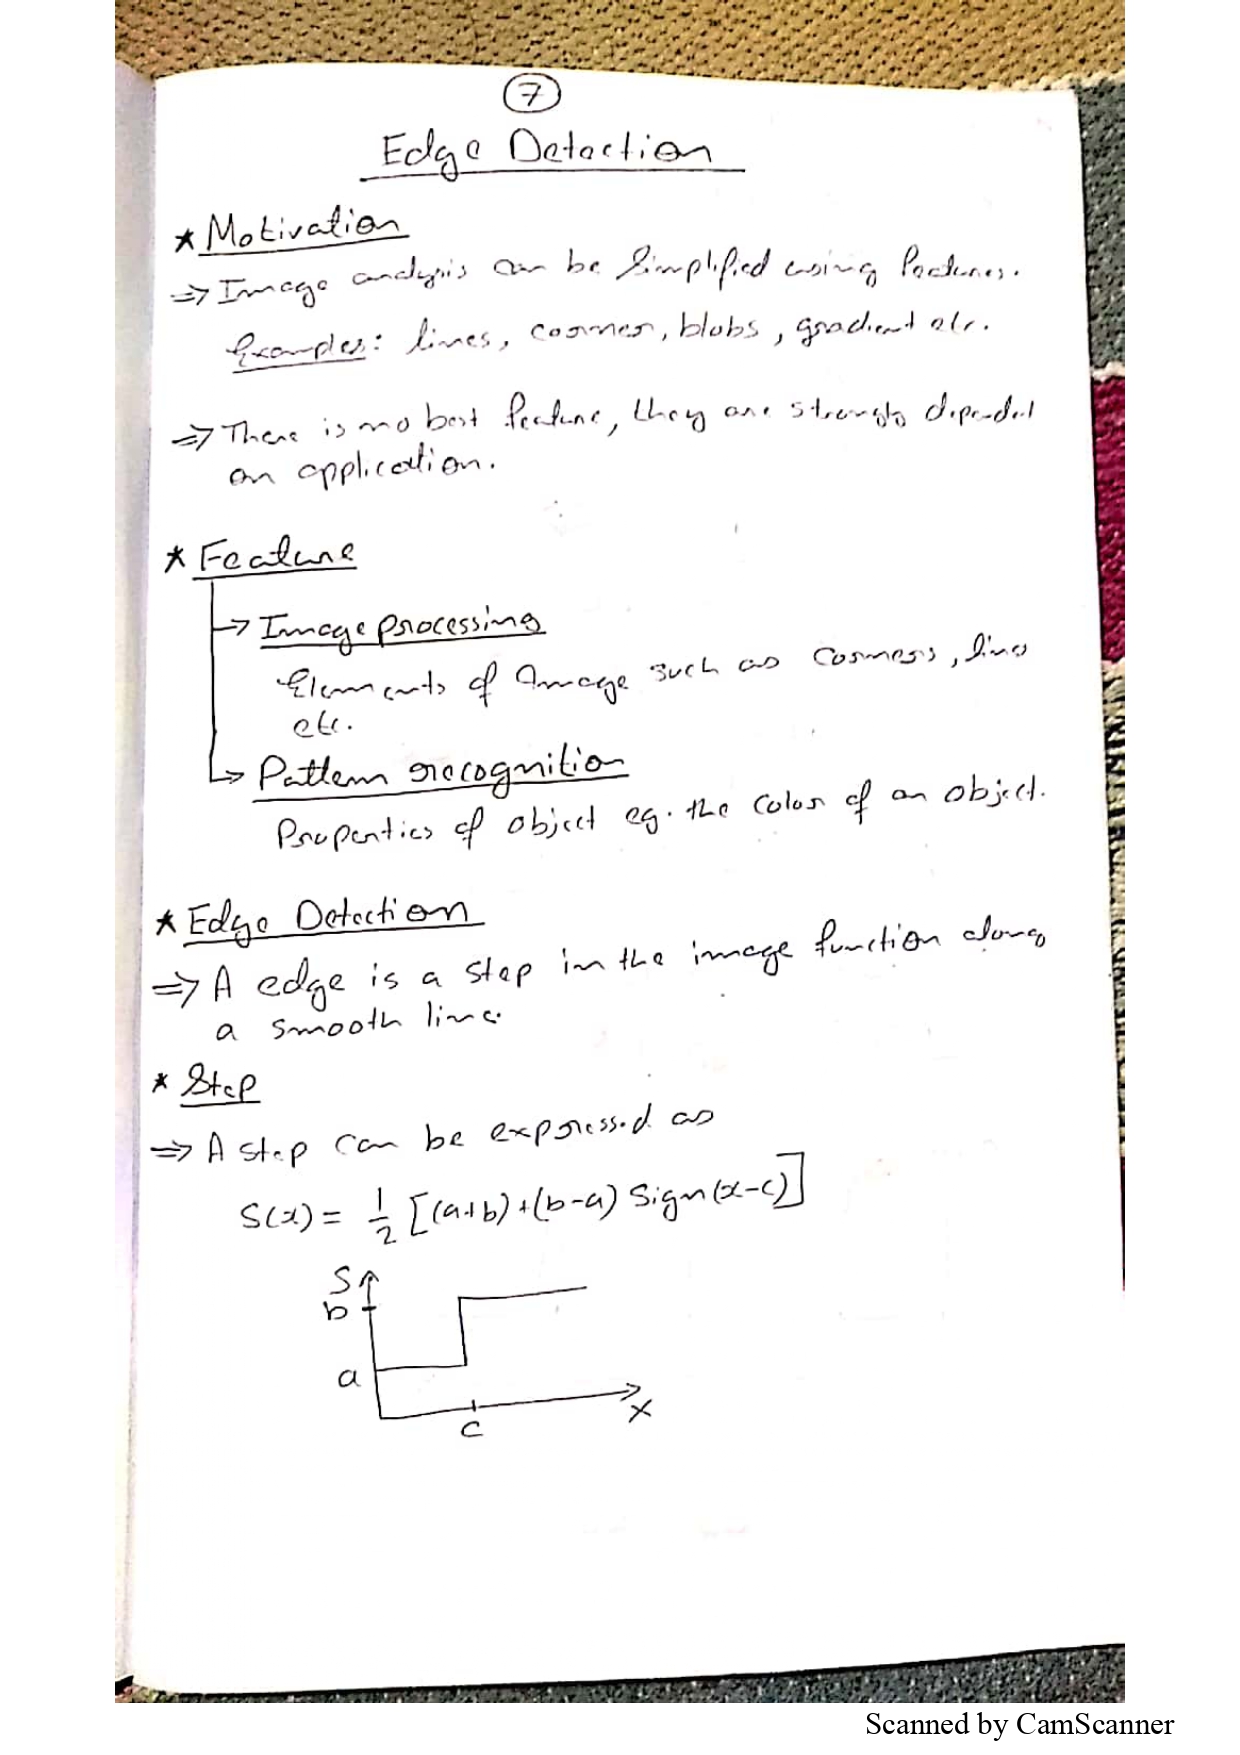 7
Edge Detection
* Motivation
⇒ Image analysis can be simplified using features.
Examples: lines, corner, blobs, gradient etc.
⇒ There is no best feature, they are strongly depended
on application.
* Feature
→ Image processing
Elements of Image such as corners, lines
etc.
→ Pattern recognition
Properties of object eg. the color of an object.
* Edge Detection
⇒ A edge is a step in the image function along
a smooth line.
* Step
⇒ A step can be expressed as
S(x) = 1/2 [(a+b)+(b-a) Sign(x-c)]
S
b
a
c
x
Scanned by CamScanner